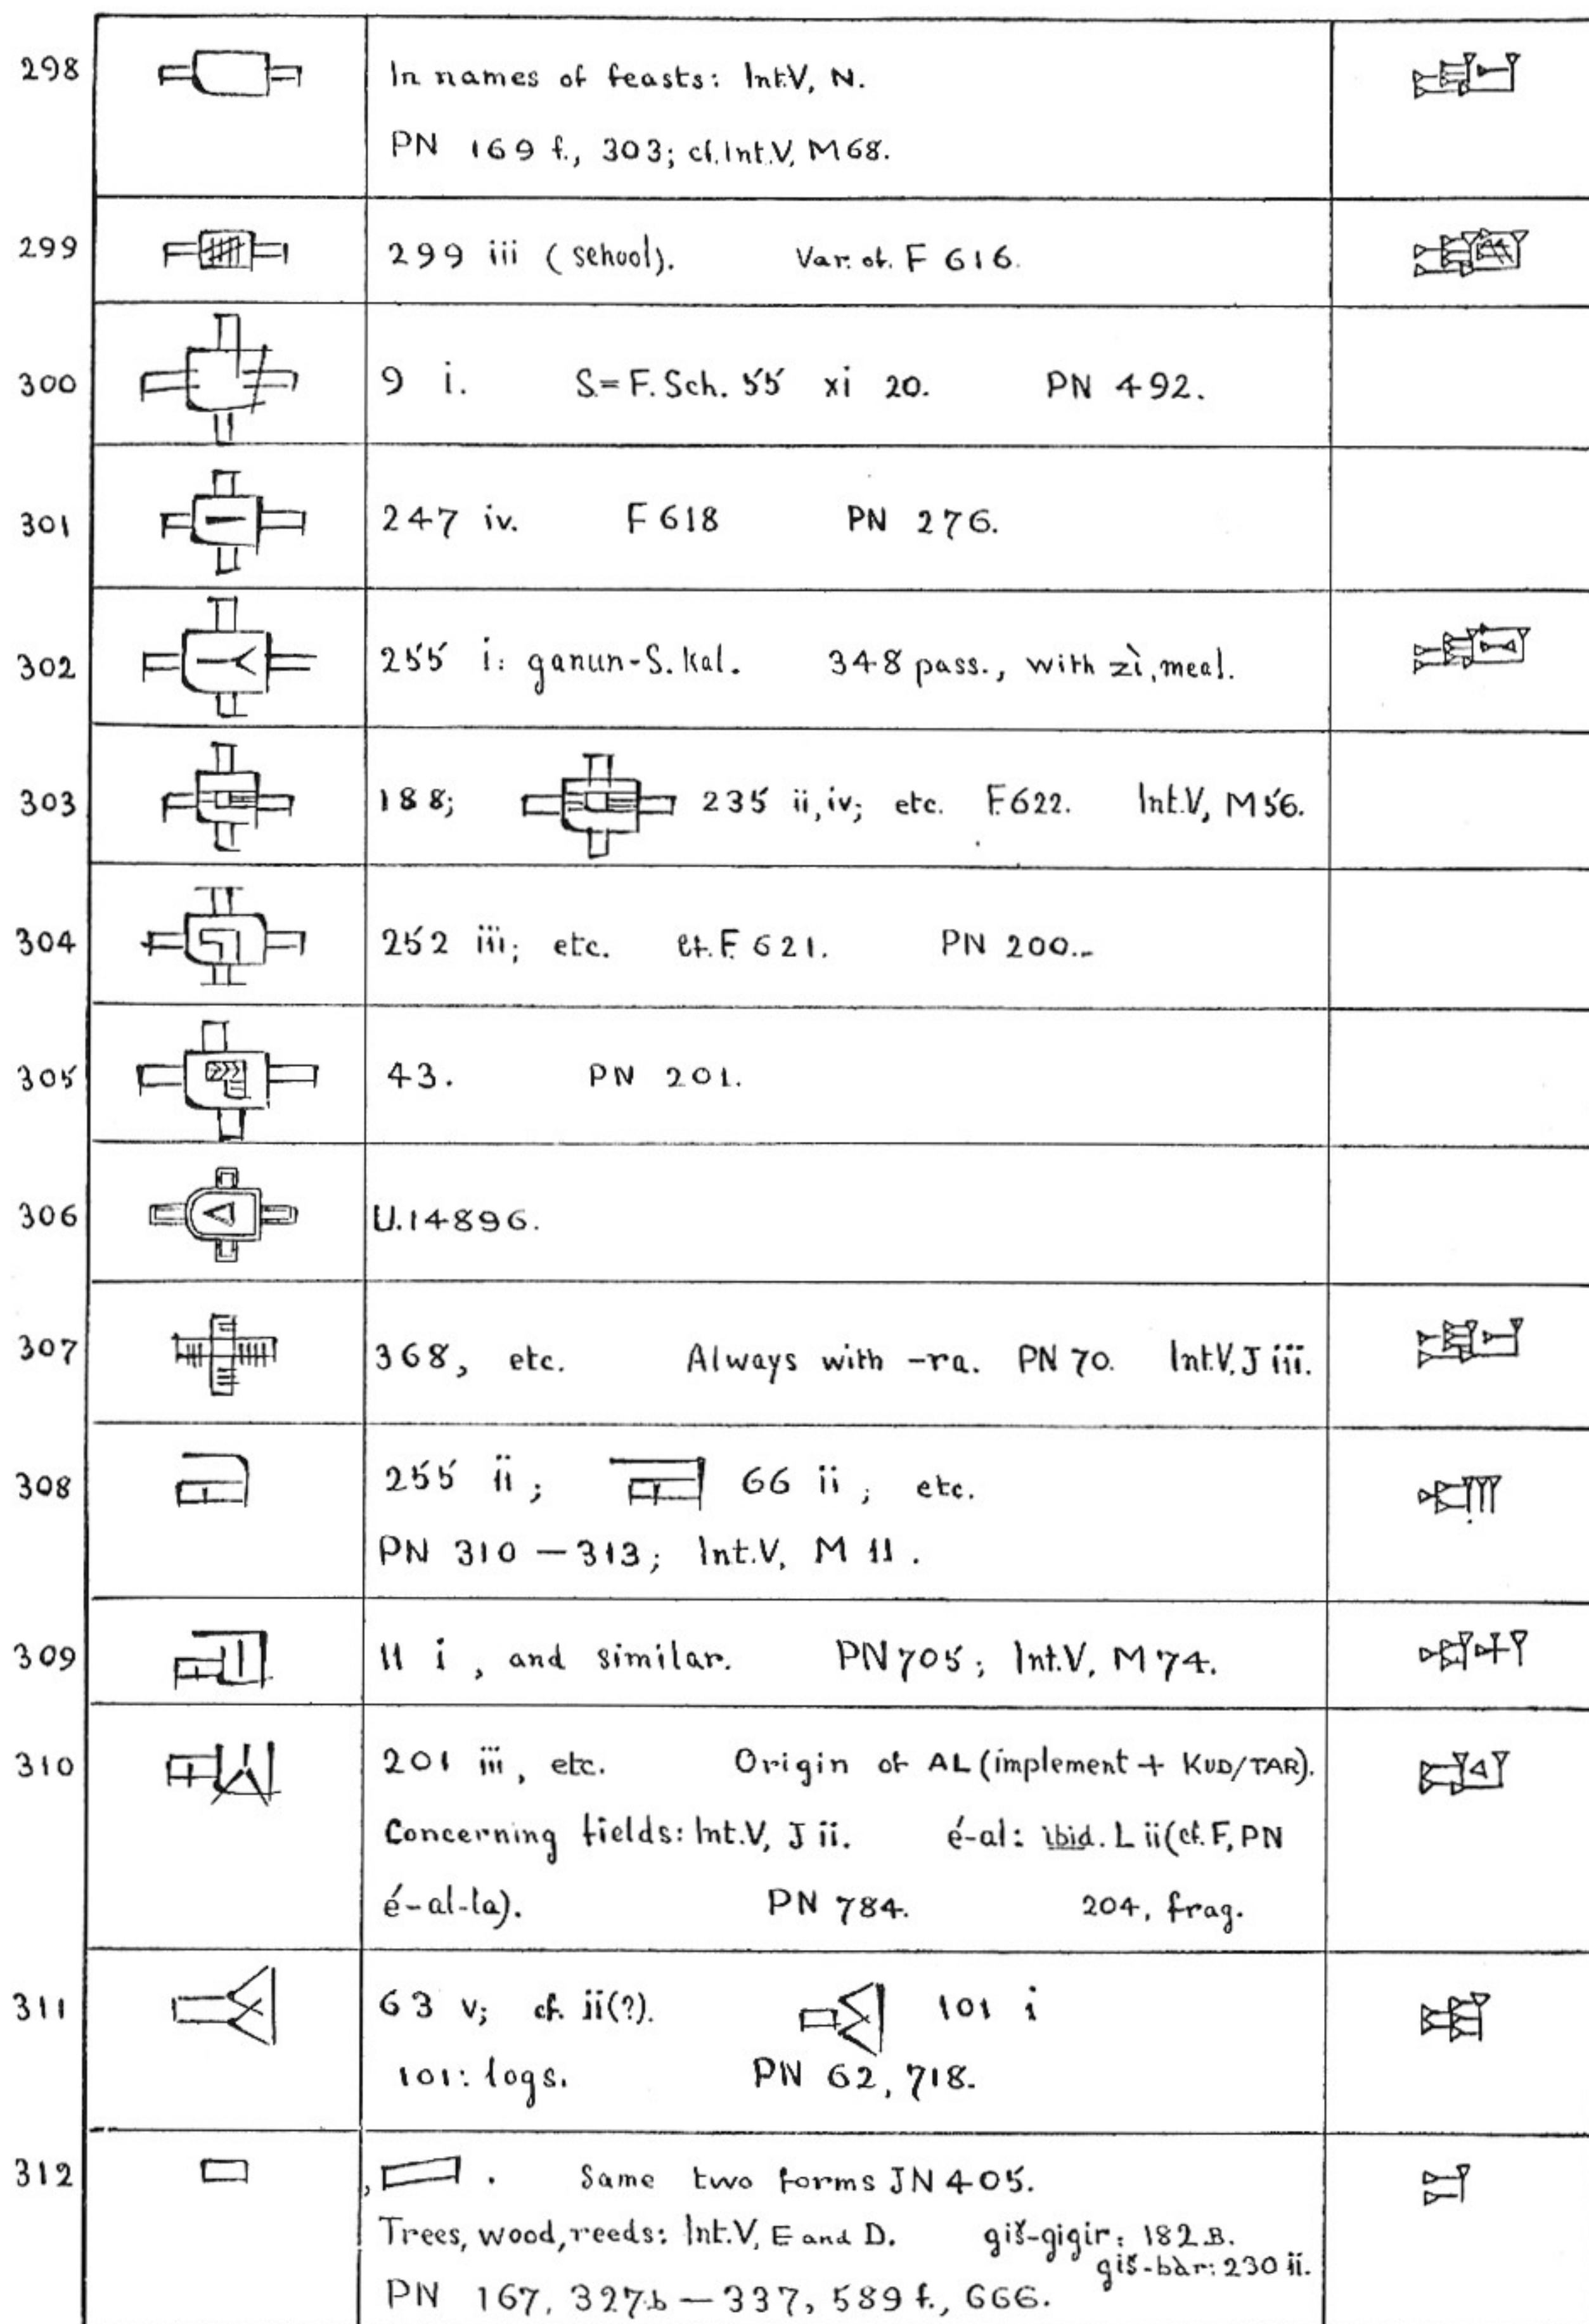 298 In names of feasts: Int.V, N.
PN 169 f., 303; cf. Int.V, M 68.
299 299 iii (school). Var. of. F 616.
300 9 i. S.= F. Sch. 55 xi 20. PN 492.
301 247 iv. F 618 PN 276.
302 255 i: ganun-S. kal. 348 pass., with zì, meal.
303 188; 235 ii, iv; etc. F.622. Int.V, M 56.
304 252 iii; etc. cf. F. 621. PN 200.
305 43. PN 201.
306 U.14896.
307 368, etc. Always with -ra. PN 70. Int.V. J iii.
308 255 ii; 66 ii; etc.
PN 310 — 313; Int.V, M 11.
309 11 i, and similar. PN 705; Int.V, M 74.
310 201 iii, etc. Origin of AL (implement + KUD/TAR).
Concerning fields: Int.V, J ii. é-al: ibid. L ii (cf. F, PN
é-al-la). PN 784. 204, frag.
311 63 v; cf. ii(?). 101 i
101: logs. PN 62, 718.
312 , . Same two forms JN 405.
Trees, wood, reeds: Int.V, E and D. giš-gigir: 182 B.
giš-bàr: 230 ii.
PN 167, 327b — 337, 589 f., 666.